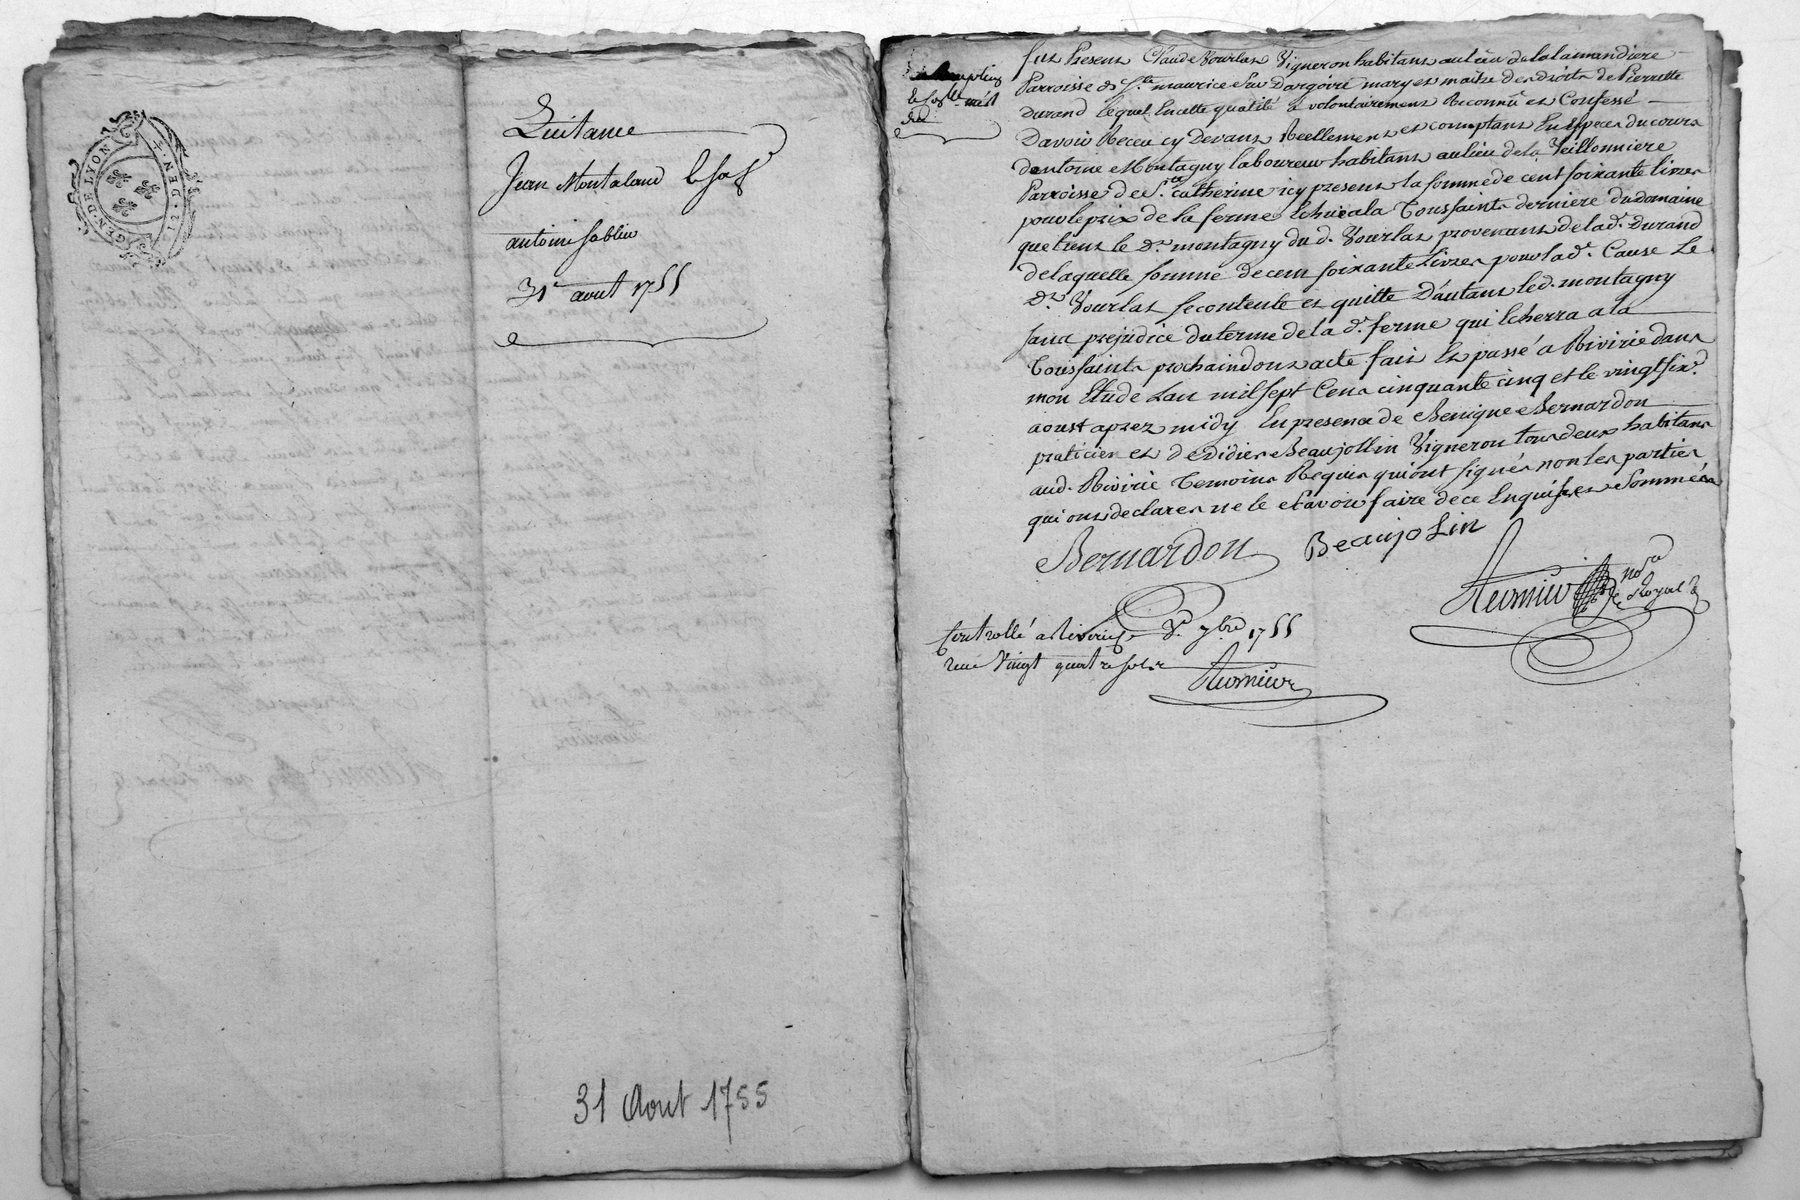 GEN·DE·LYON
12·DEN
Quitance
Jean Montaland
antoine
31e aoust 1755
31 Aout 1755
fut Présent Claude Vourlat Vigneron habitant au lieu de la lamandiere
Parroisse de St. maurice sur Dargoire mary et maitre des droits de Pierrette
Durand lequel en cette qualité a volontairement Reconnû et Confessé
Davoir Receu cy devant Reellement et comptant En especes du cours
dantoine Montagny laboureur habitant au lieu de la Veillonniere
Parroisse de Ste. catherine icy present la somme de cent soixante livres
pour le prix de la ferme Echue a la Toussaints derniere du domaine
que tient le dt. montagny du d. Vourlat provenant de la de. Durand
de laquelle somme de cent soixante Livres pour la de. Cause Le
dt. Vourlat se contente et quitte D'autant led. montagny
sans prejudice du terme de la de. ferme qui Echerra a la
Toussaints prochain dont acte fait Et passé a Riviriè dans
mon Etude Lan mil sept Cent cinquante cinq et le vingt six
aoust aprez midy En presence de Benigne Bernardon
praticien et de Didier Beaujollin Vigneron tous deux habitans
aud. Riviriè Temoins Requis qui ont signés non les parties
qui ont declarer ne le scavoir faire de ce Enquises et Sommées
Bernardon Beaujolin
nore
Royal
Controllé a Riverie 7bre 1755
receu Vingt quatre sols